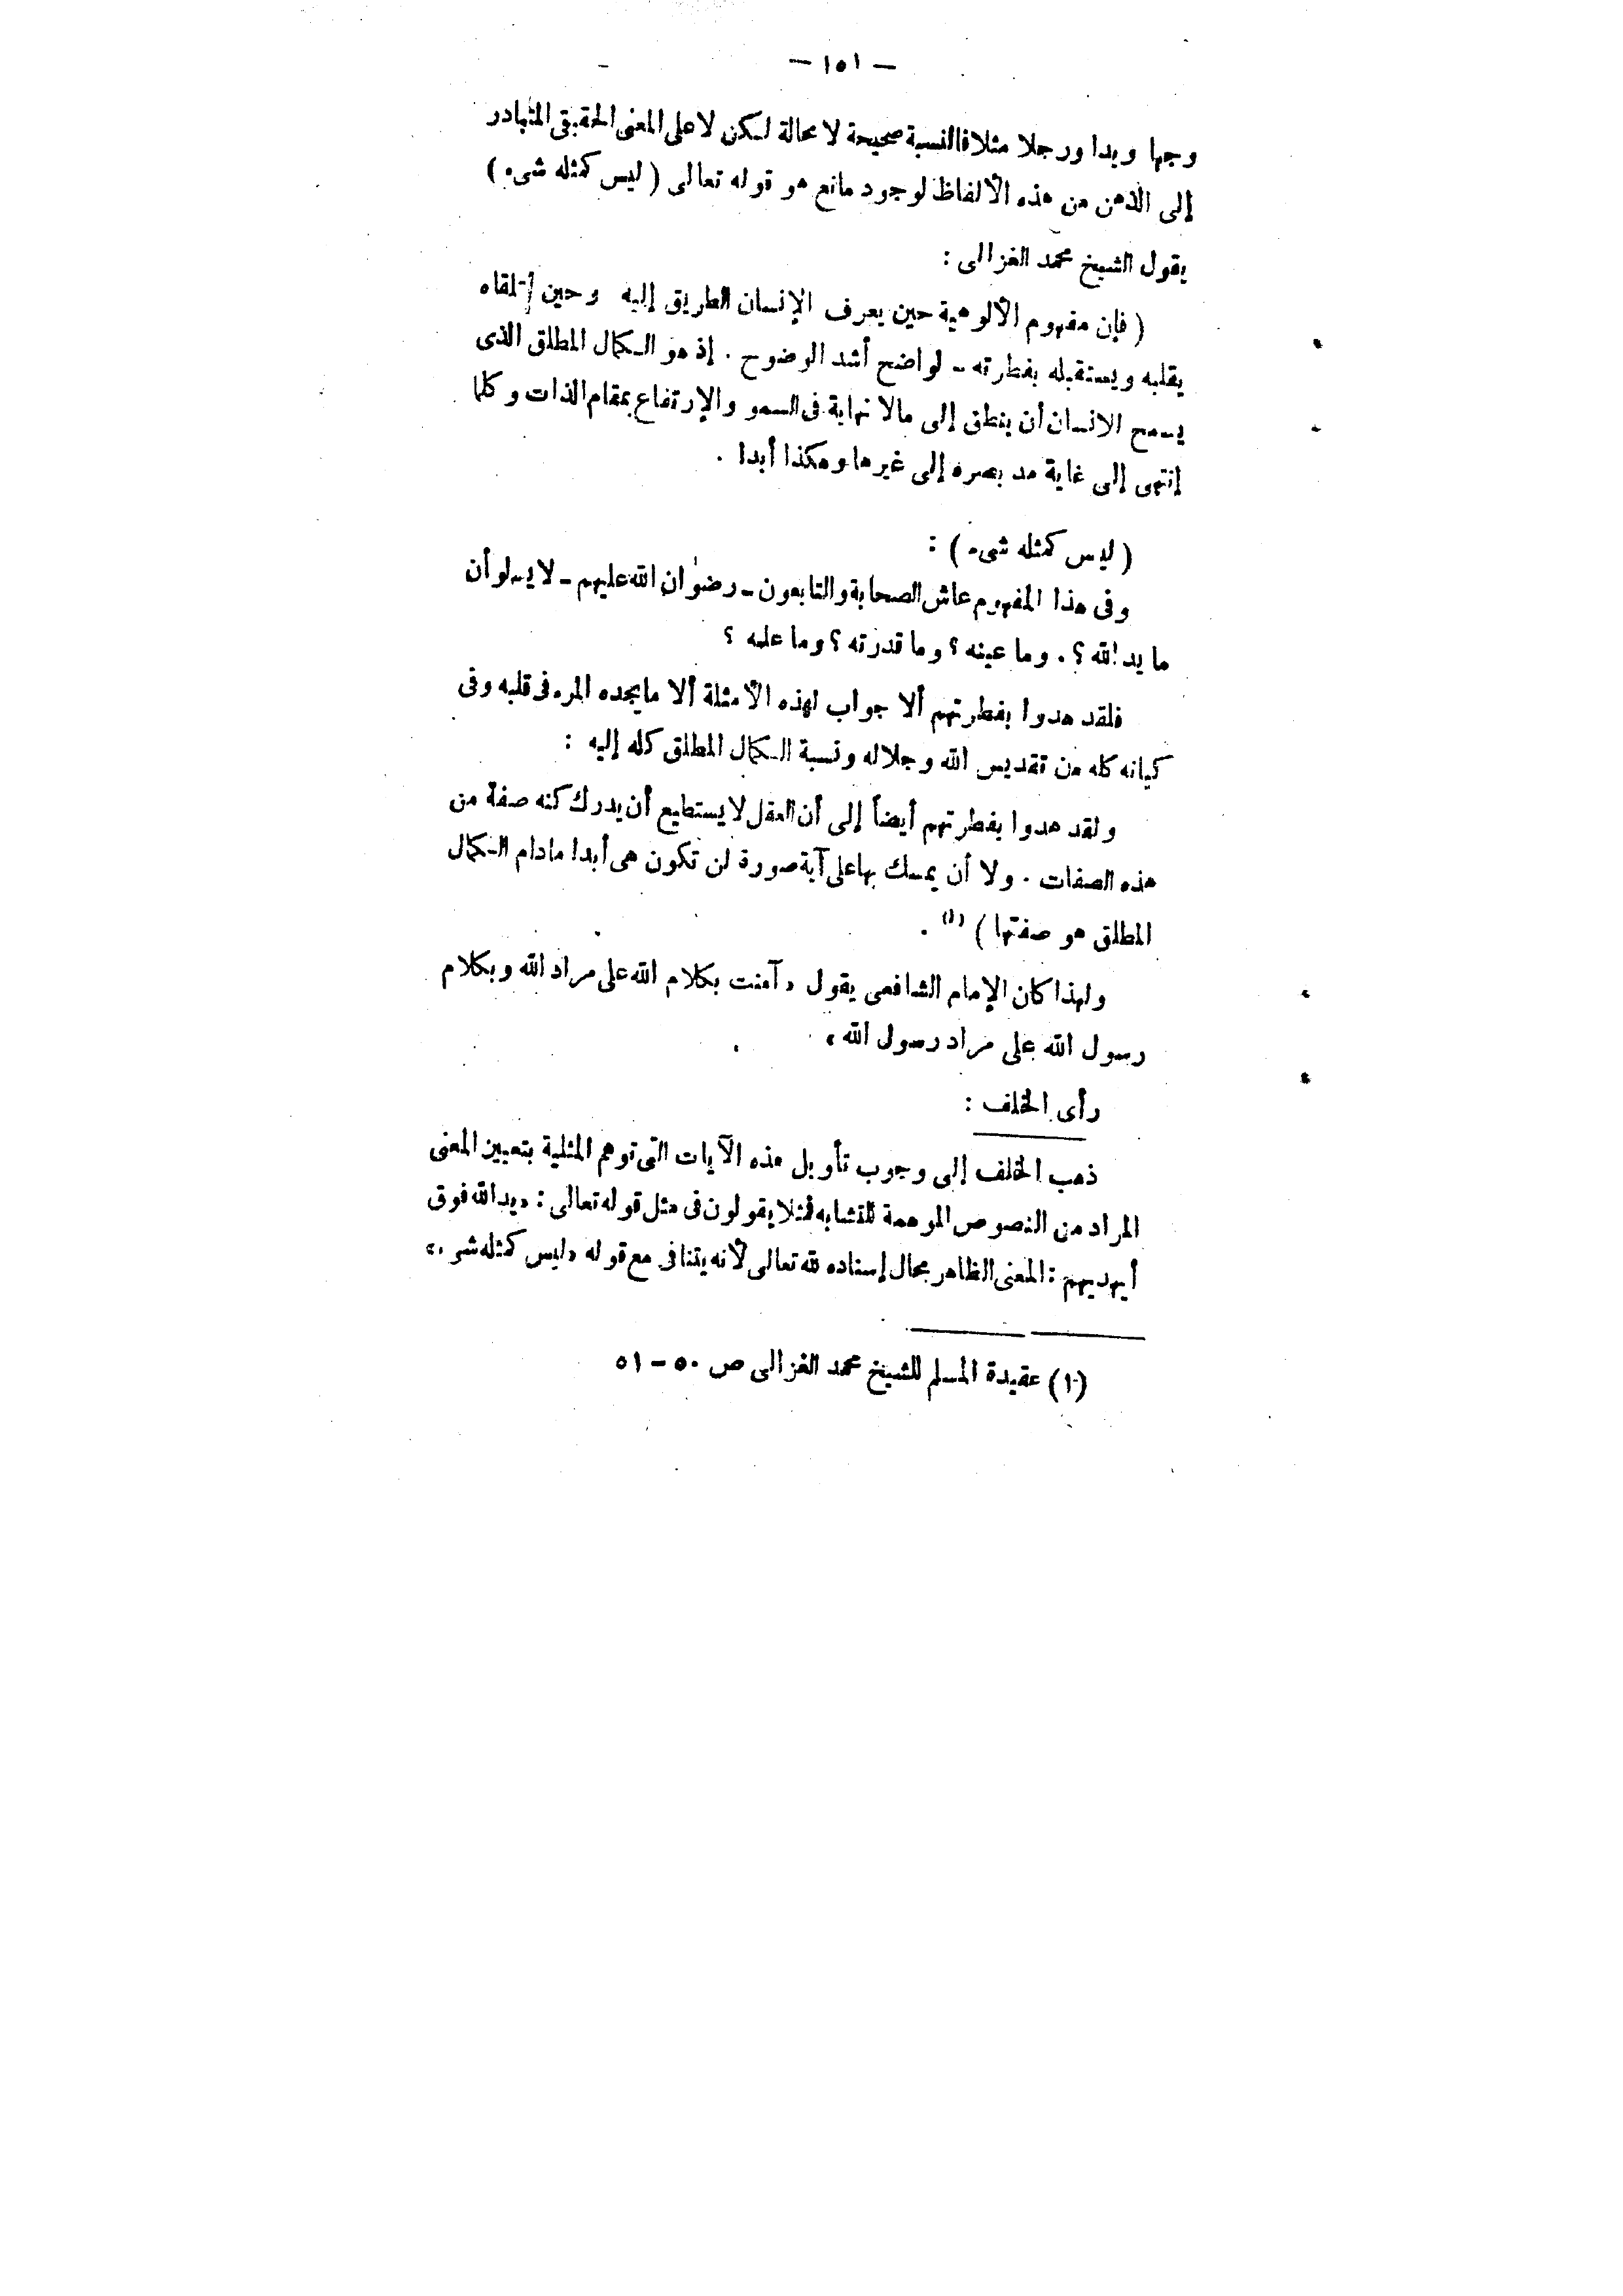 — ١٥١ —
وجها ويدا ورجلا مثلا فالنسبة صحيحة لا محالة لكن لا على المعنى الحقيقى المتبادر
إلى الذهن من هذه الألفاظ لوجود مانع هو قوله تعالى ( ليس كمثله شىء )
يقول الشيخ محمد الغزالى :
( فإن مفهوم الألوهية حين يعرف الإنسان الطريق إليه وحين تلقاه
يقلبه ويستقبله بفطرته – لواضح أشد الوضوح . إذ هو الكمال المطلق الذى
يسمح الانسان أن ينطق إلى مالا نهاية فى السمو والإرتفاع بمقام الذات وكلما
إنتهى إلى غاية مد بصره إلى غيرها وهكذا أبدا .
( ليس كمثله شىء ) :
وفى هذا المفهوم عاش الصحابة والتابعون – رضوان الله عليهم – لا يسلوأن
ما يد الله ؟ . وما عينه ؟ وما قدرته ؟ وما علمه ؟
فلقد هدوا بفطرتهم ألا جواب لهذه الأمثلة ألا ما يجده المرء فى قلبه وفى
كيانه كله من تقديس الله وجلاله ونسبة الكمال المطلق كله إليه :
ولقد هدوا بفطرتهم أيضاً إلى أن العقل لا يستطيع أن يدرك كنه صفة من
هذه الصفات . ولا أن يمسك بها على آية صورة لن تكون هى أبدا مادام الكمال
المطلق هو صفتها ) (١) .
ولهذا كان الإمام الشافعى يقول « آمنت بكلام الله على مراد الله وبكلام
رسول الله على مراد رسول الله »
رأى الخلف :
ذهب الخلف إلى وجوب تأويل هذه الآيات التى توهم المثلية بتعيين المعنى
المراد من النصوص الموهمة للتشابه فمثلا يقولون فى مثل قوله تعالى : « يد الله فوق
أيهديهم : المعنى الظاهر محال إسناده لله تعالى لأنه يتنافى مع قوله « ليس كمثله شىء »
(١) عقيدة المسلم للشيخ محمد الغزالى ص ٥٠ – ٥١